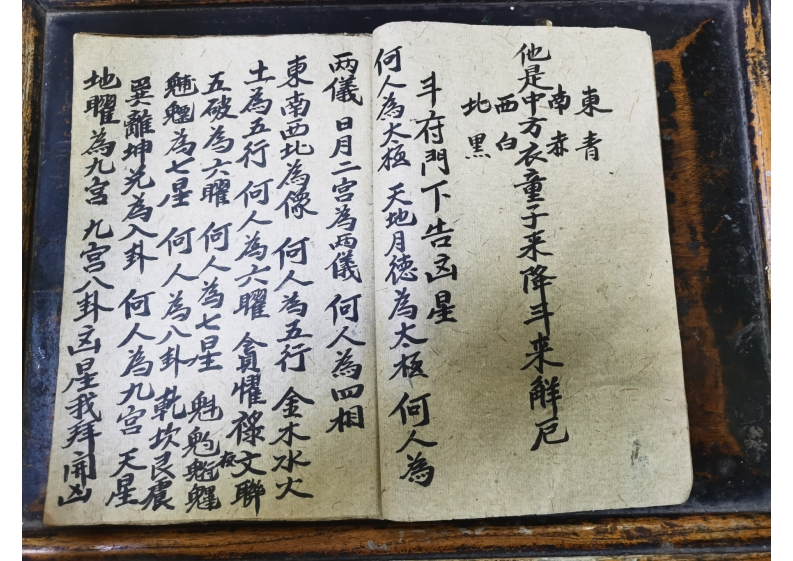 東青
南赤
他是中方衣童子来降斗来解厄
西白
北黑
斗府門下告凶星
何人為太極 天地月德為太極 何人為
兩儀 日月二宮為兩儀 何人為四相
東南西北為像 何人為五行 金木水火
土為五行 何人為六曜 貪懼祿文聯
五破為六曜 何人為七星 魁
為七星 何人為八卦 乾坎艮震
巽離坤兌為八卦 何人為九宮 天星
地曜為九宮 九宮八卦凶星我拜開凶